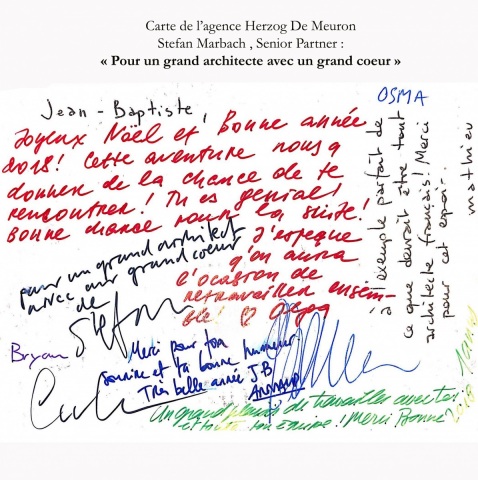 Carte de l'agence Herzog De Meuron
Stefan Marbach , Senior Partner :
« Pour un grand architecte avec un grand coeur »
Jean-Baptiste,
Joyeux Noël et Bonne année
2018! Cette aventure nous a
donner de la chance de te
rencontrer! Tu es genial!
Bonne chance pour la suite!
J'espeque
q'on aura
l'ocasion de
retravailler ensem-
ble! ♡ Olga
pour un grand architect
avec un grand coeur
de
Stefan
OSMA
à l'exemple parfait de
ce que devrait être tout
architecte français! Merci
pour cet espoir.
mathieu
Bryan
Merci pour ton
sourire et ta bonne humeur!
Très belle année J.B
ARNAUD
Un grand plaisir de travailler avec toi
et toute ton equipe! Merci Bonne